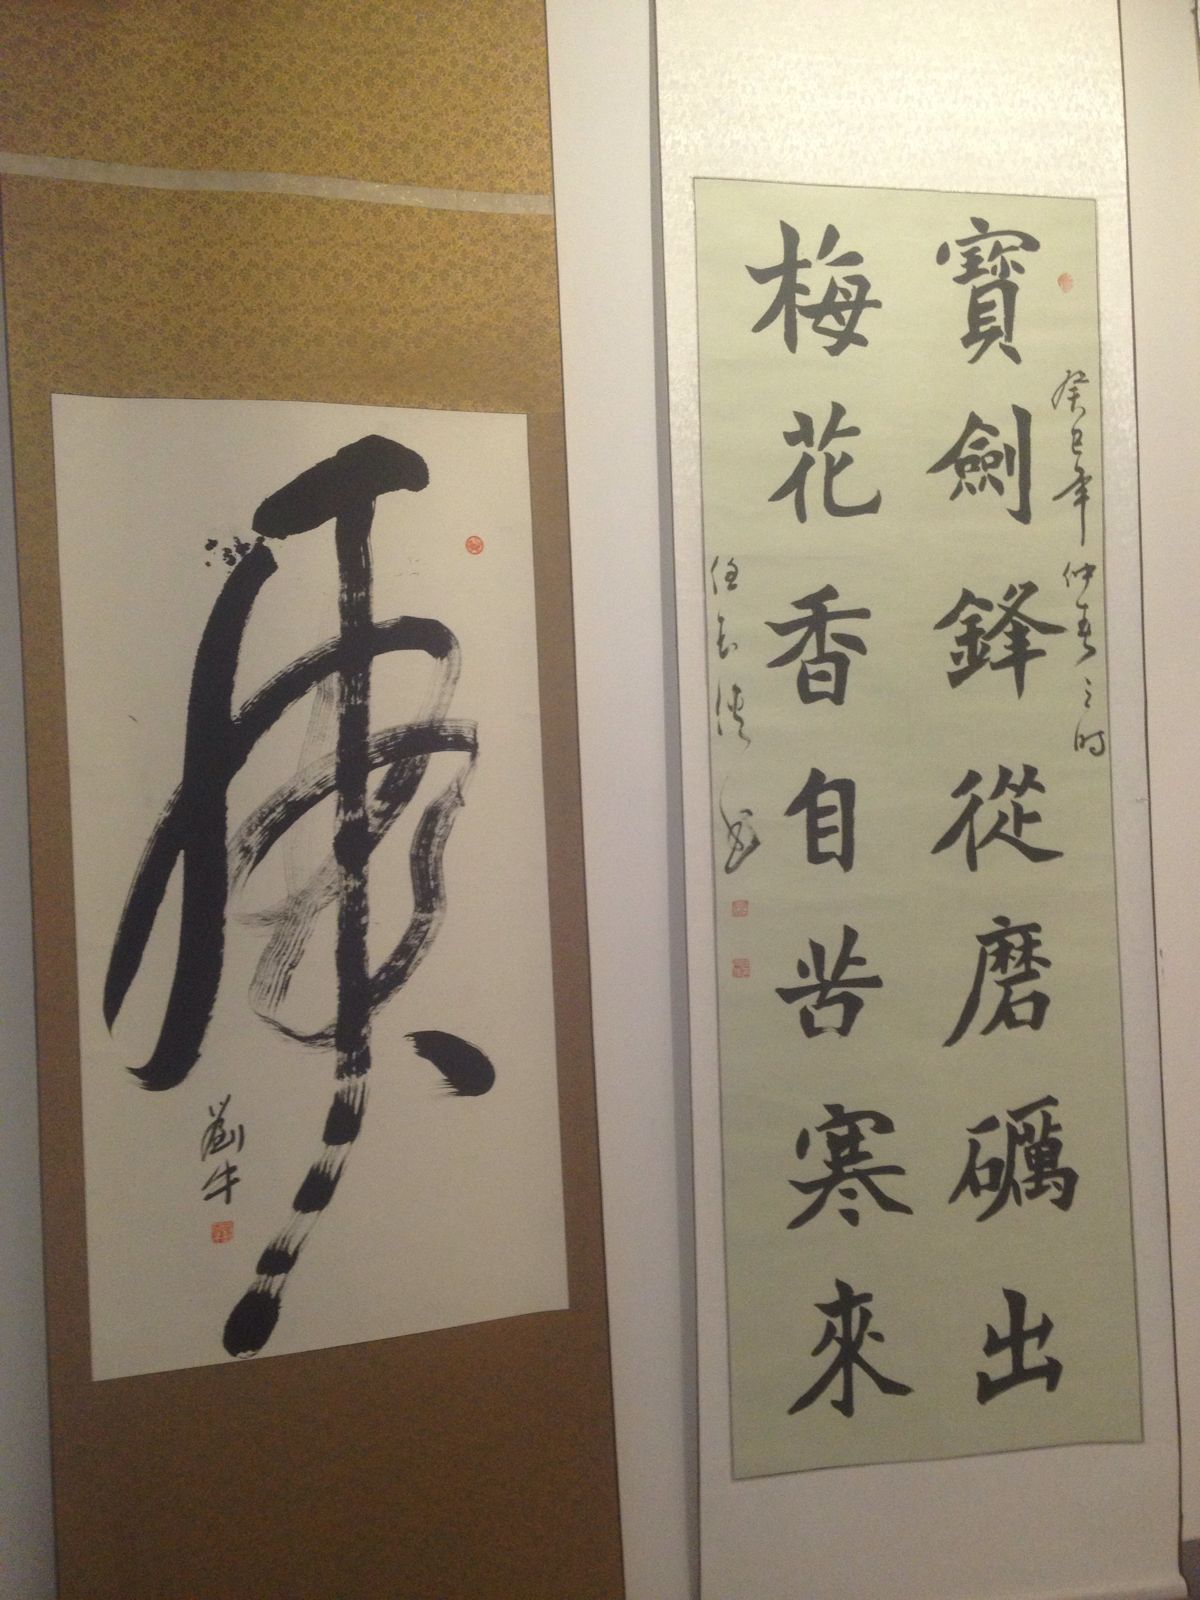 癸巳年仲春之时
寶劍鋒從磨礪出
梅花香自苦寒來
虎
劉牛